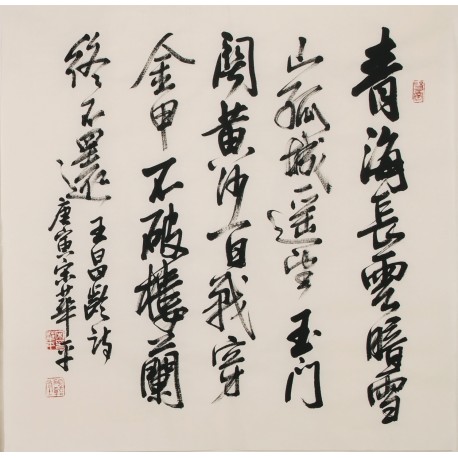 青海長雲暗雪
山孤城遥望玉门
關黄沙百戰穿
金甲不破樓蘭
終不還 王昌齡詩
庚寅宋華平